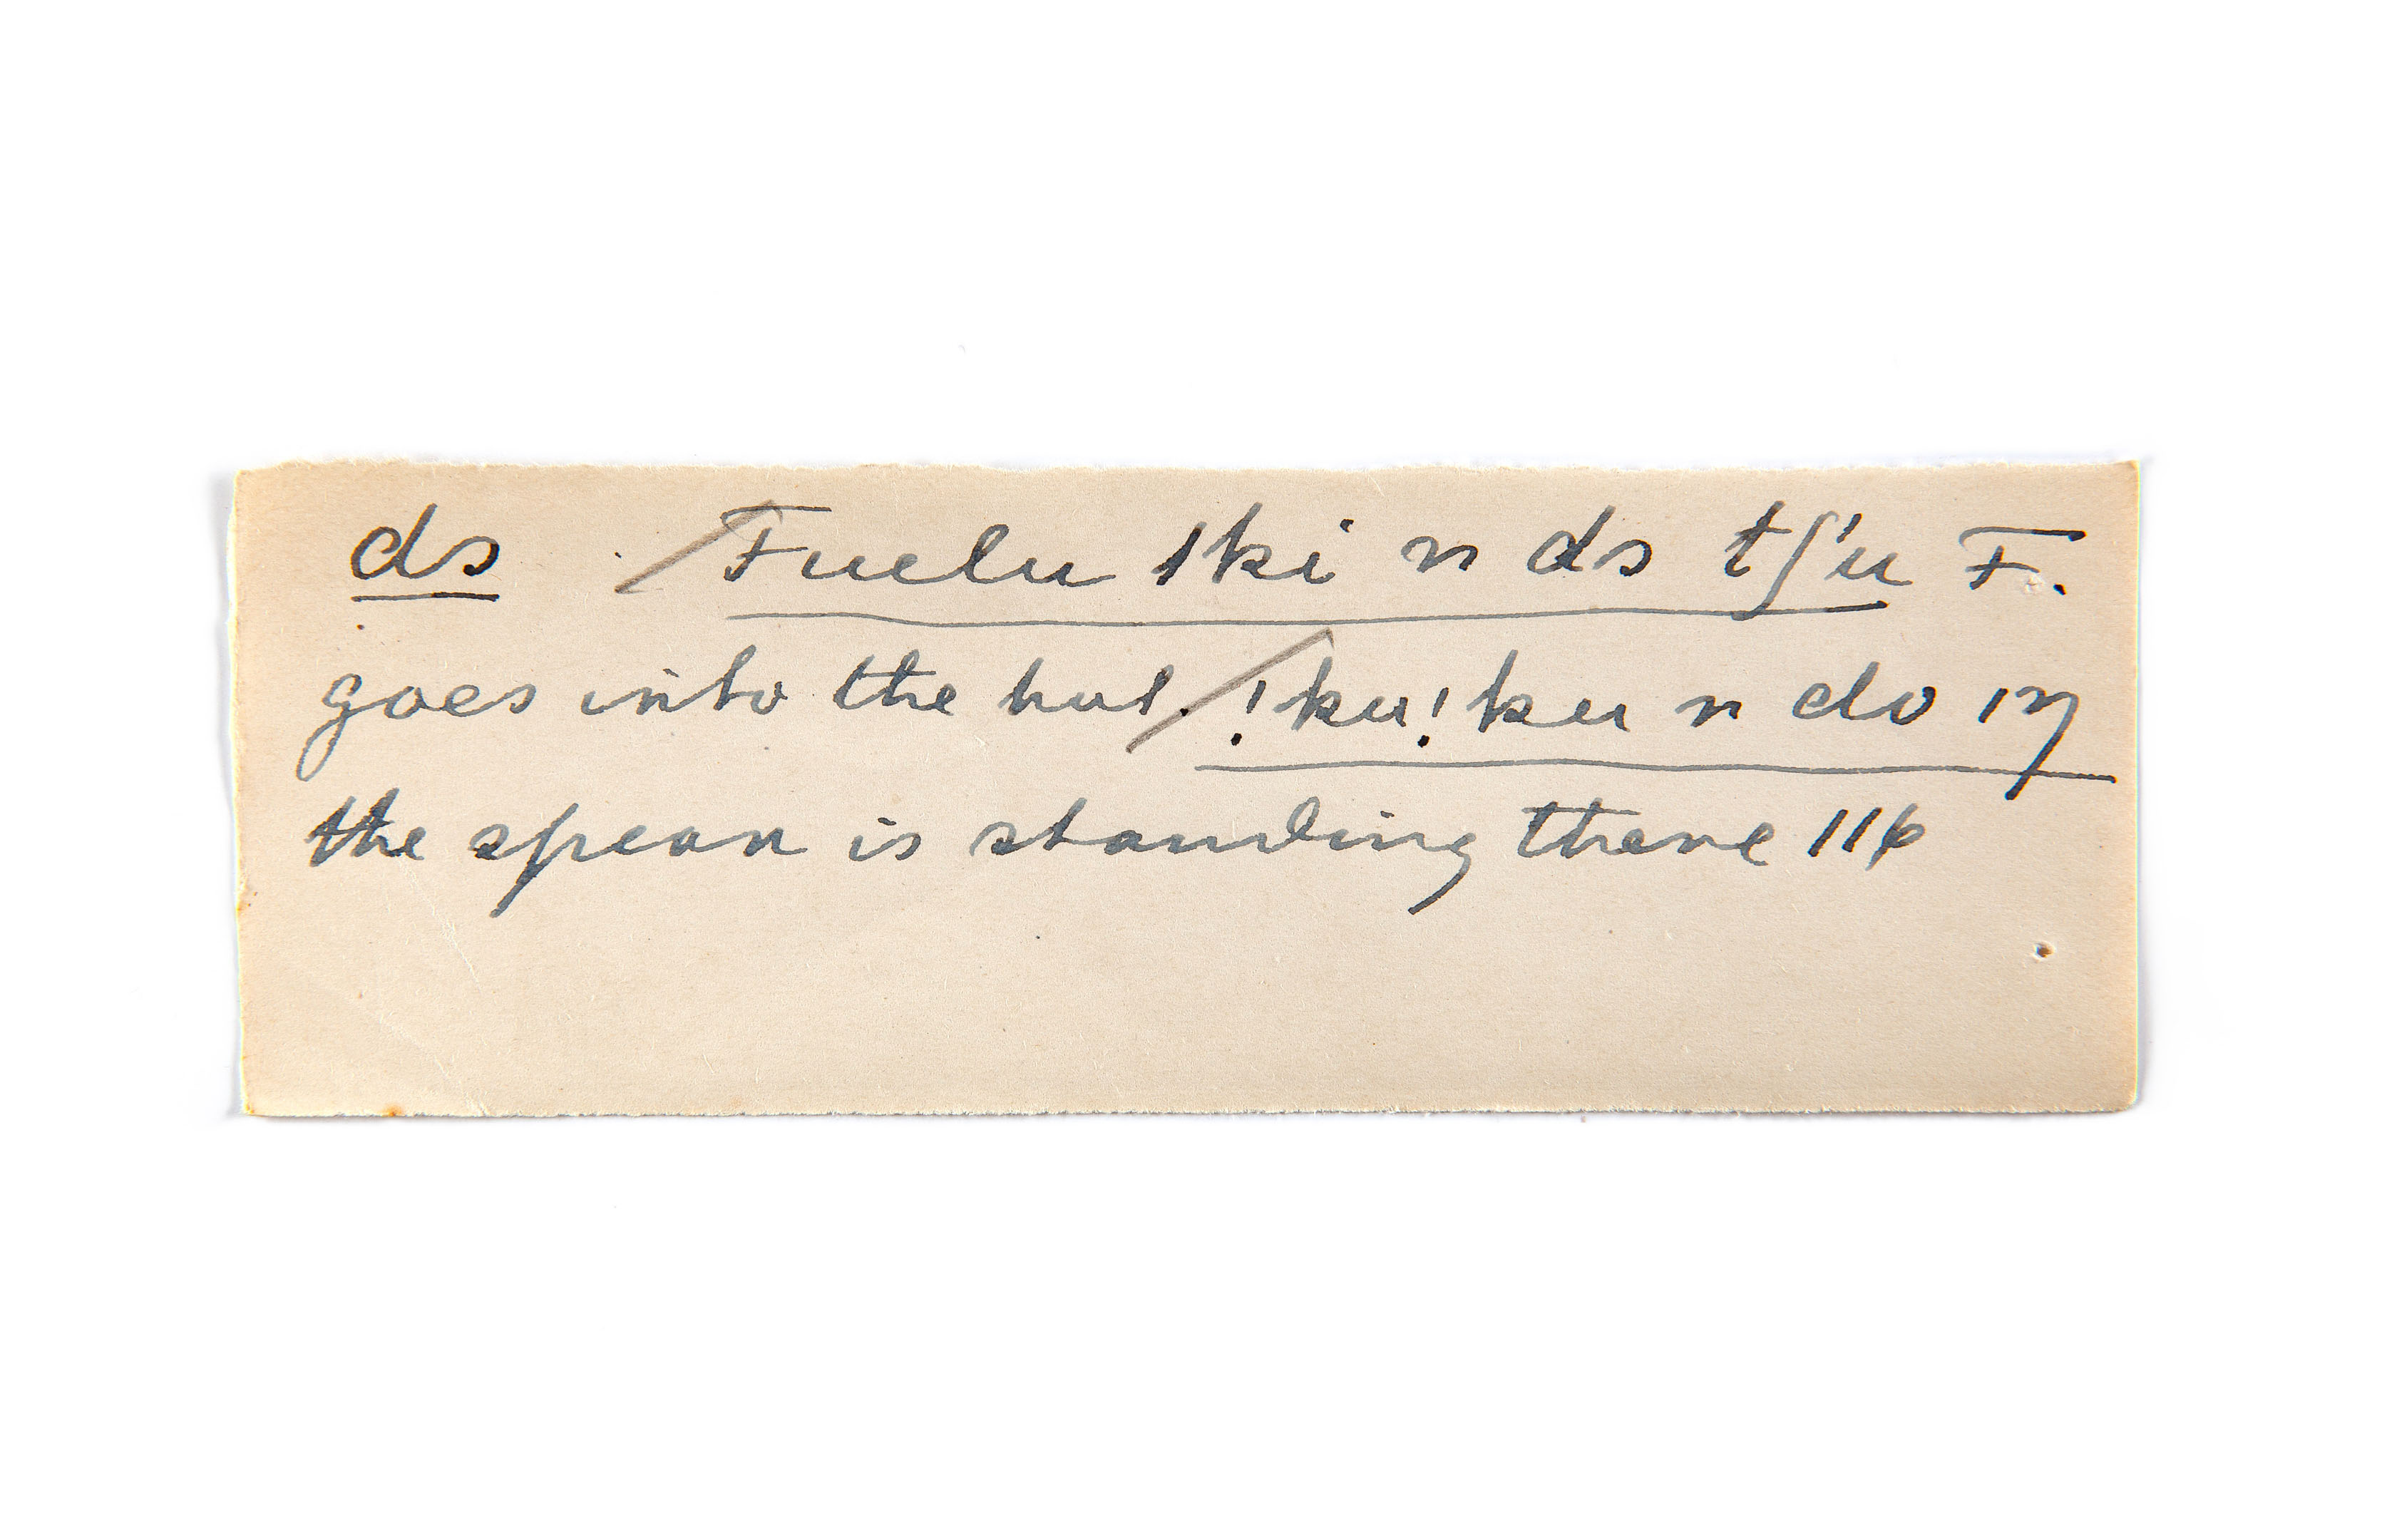 ds Fuelu ǀki n ds tʃ'u F.
goes into the hut. !ku!ku n do ıŋ
the spear is standing there 116